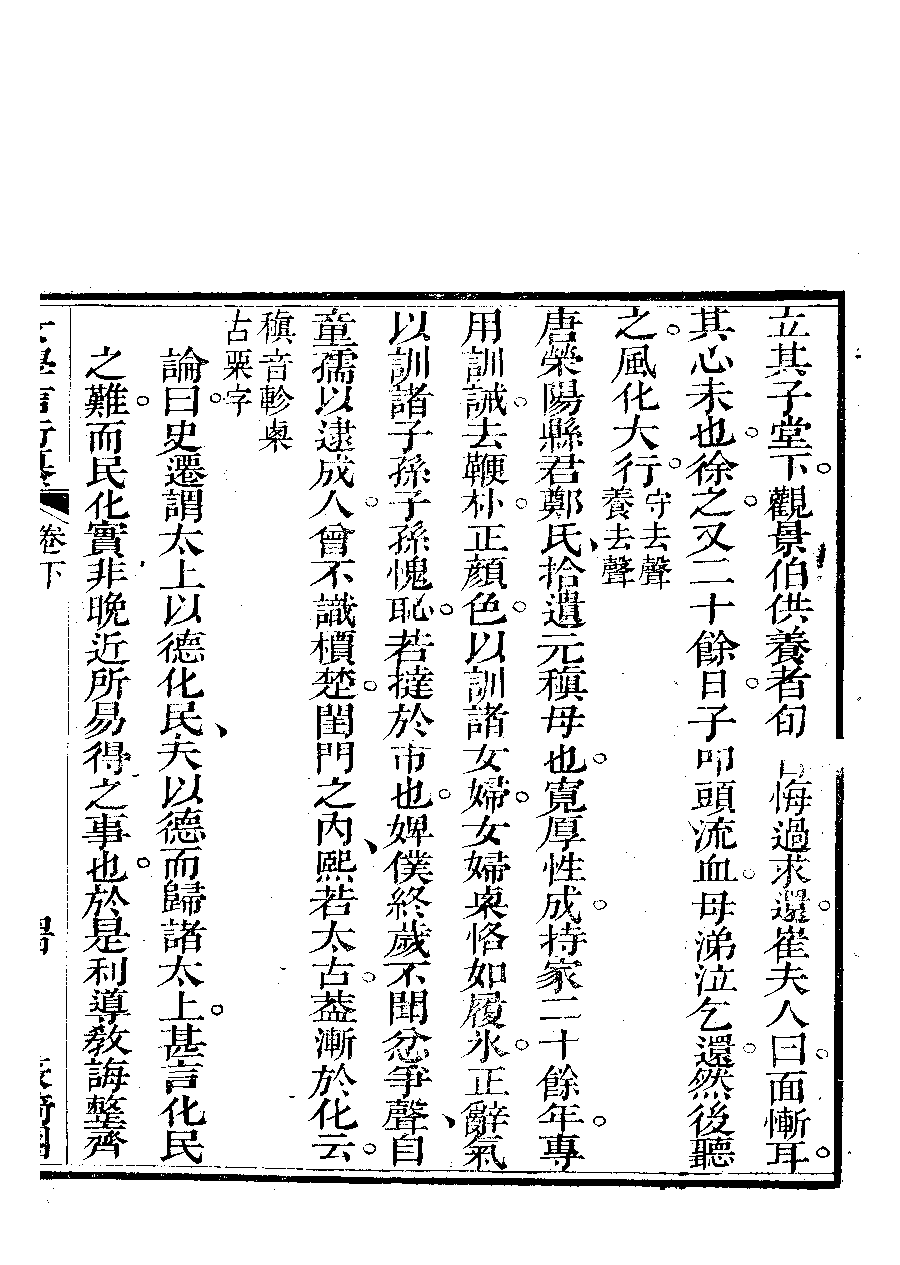 立其子堂下。觀景伯供養者旬日。悔過求還。崔夫人曰。面慚耳。
其心未也。徐之。又二十餘日。子叩頭流血。母涕泣乞還。然後聽
之。風化大行。守去聲養去聲
唐滎陽縣君鄭氏、拾遺元稹母也。寬厚性成。持家二十餘年。專
用訓誡。去鞭朴。正顏色。以訓諸女婦。女婦㮚恪如履氷。正辭氣、
以訓諸子孫。子孫愧恥。若撻於市也。婢僕終歲不聞忿爭聲、自
童孺以逮成人。曾不識檟楚。閨門之內、熙若太古。葢漸於化云。
稹音軫㮚
古栗字
論曰。史遷謂太上以德化民、夫以德而歸諸太上。甚言化民
之難。而民化實非晚近所易得之事也。於是利導敎誨整齊
女學言行纂
卷下